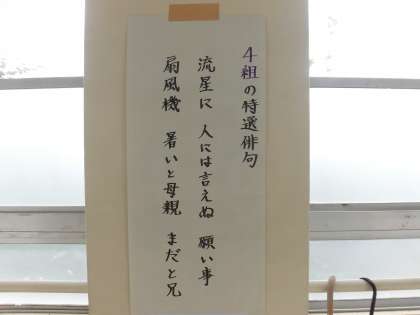 4組の特選俳句
流星に 人には言えぬ 願い事
扇風機 暑いと母親 まだと兄